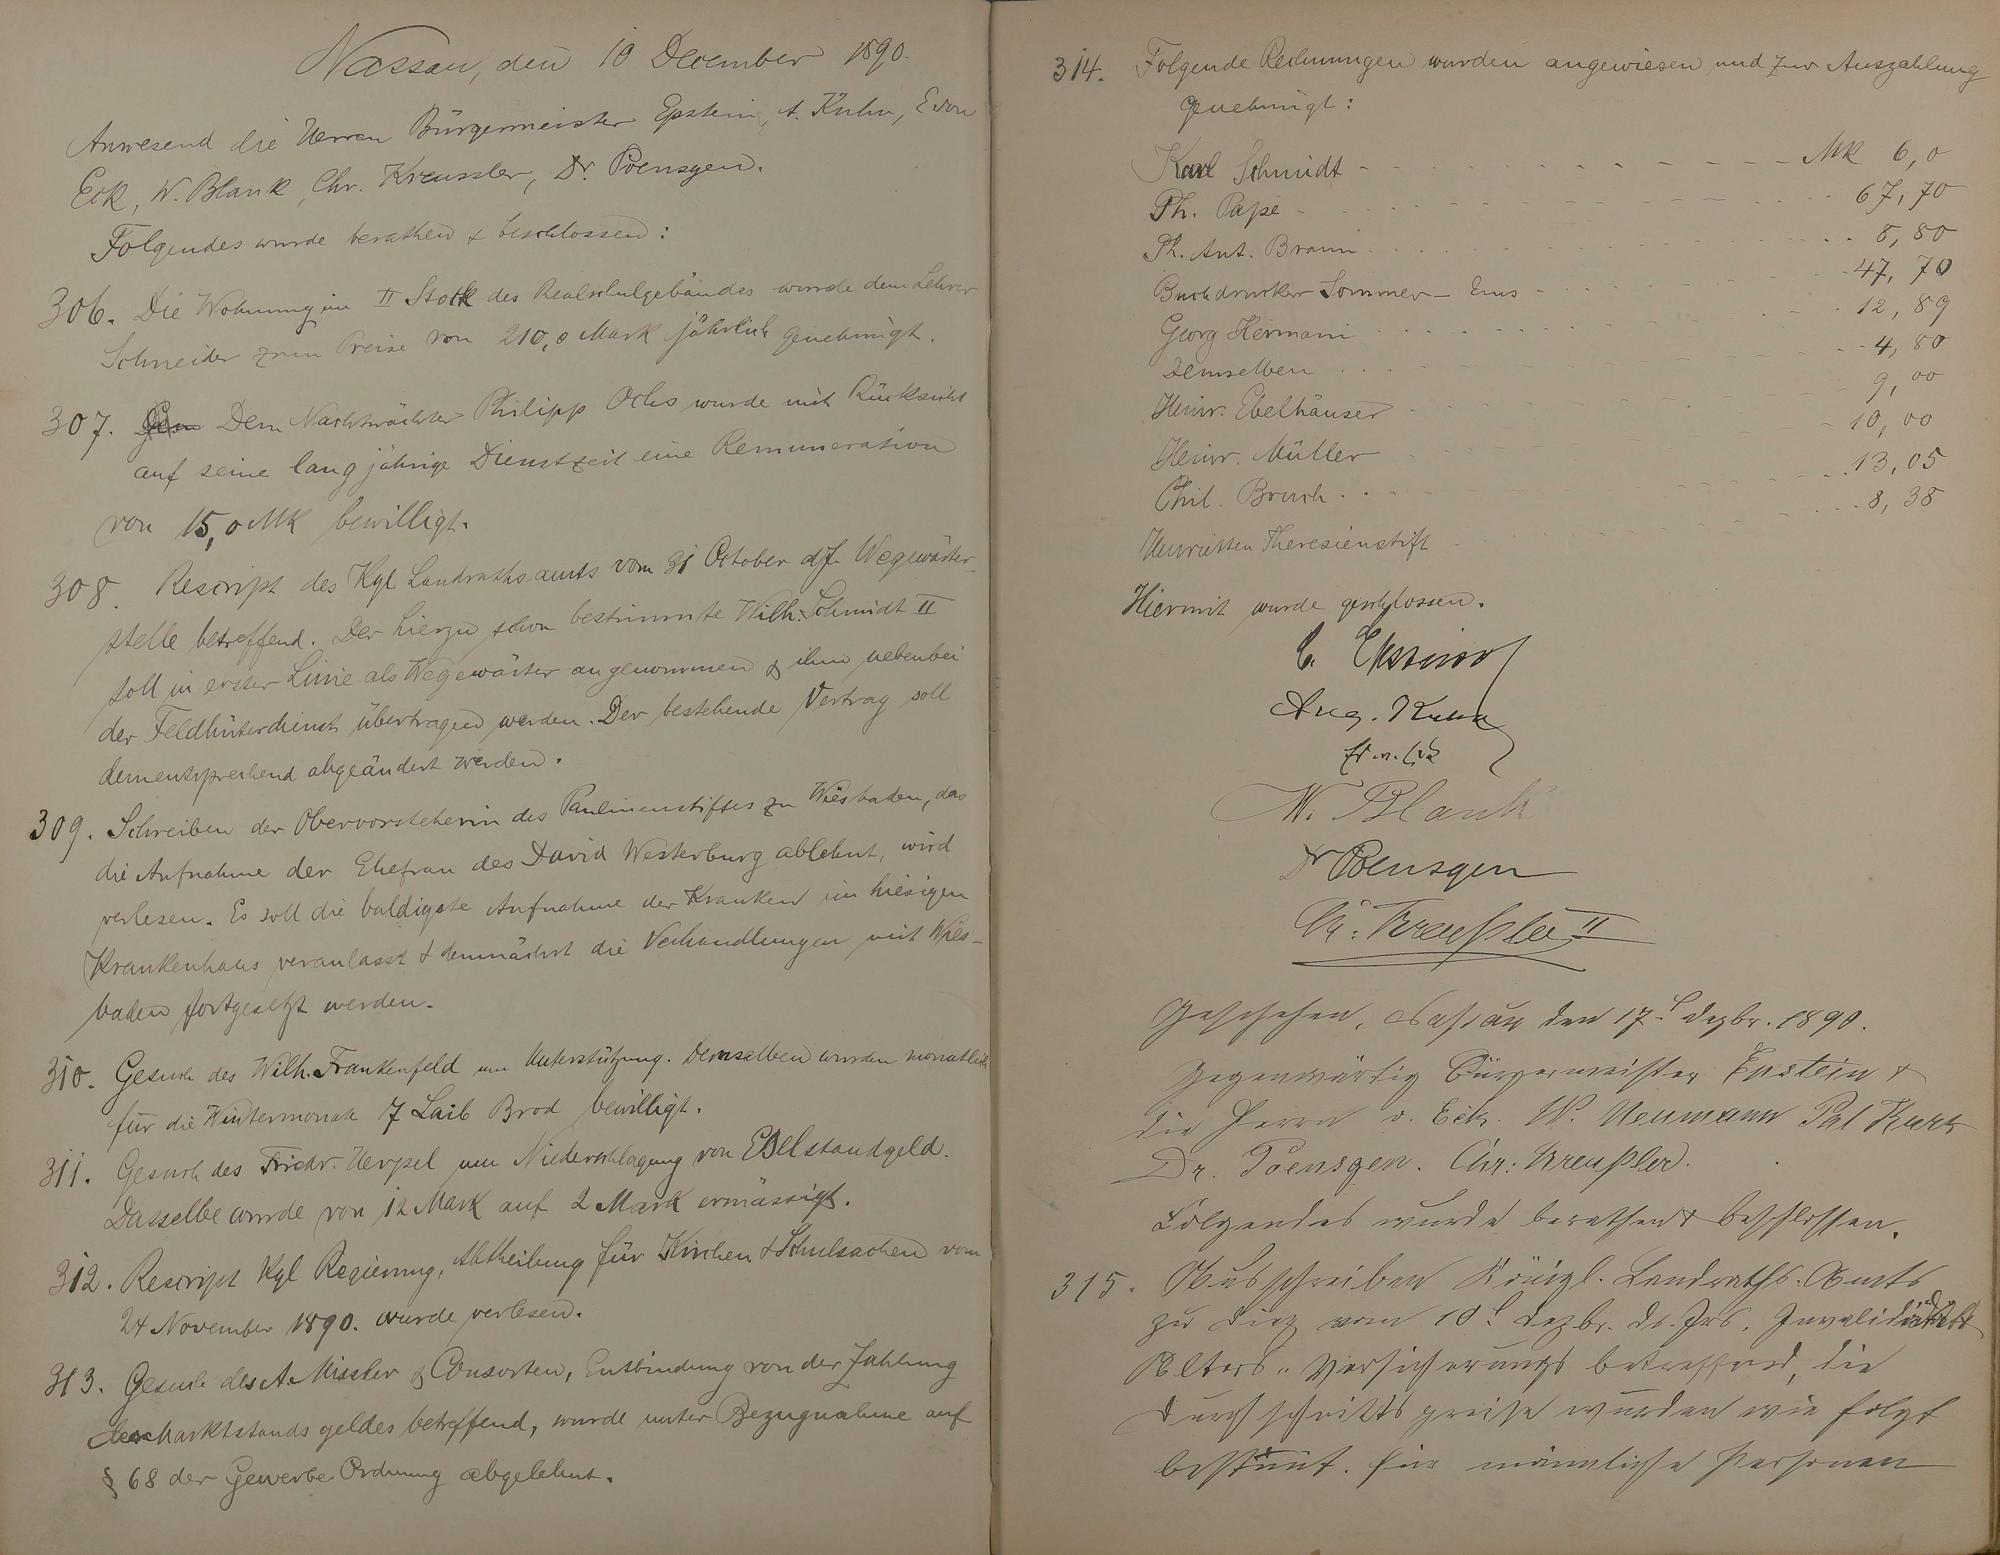 Nassau, den 10 December 1890.
Anwesend die Herren Bürgermeister Epstein, A. Kuhn, E von
Eck, W. Blank, Chr. Kreussler, Dr. Poensgen.
Folgendes wurde berathen & beschlossen:
306. Die Wohnung im II Stock des Realschulgebäudes wurde dem Lehrer
Schneider zum Preise von 210,0 Mark jährlich genehmigt.
307. Dem Nachtwächter Philipp Ochs wurde mit Rücksicht
auf seine langjährige Dienstzeit eine Remuneration
von 15,0 MK bewilligt.
308. Rescript des Kgl Landrathsamts vom 31 October d/J. Wegewärter-
stelle betreffend. Der hierzu schon bestimmte Wilh. Schmidt II
soll in erster Linie als Wegewärter angenommen & ihm nebenbei
der Feldhüterdienst übertragen werden. Der bestehende Vertrag soll
dementsprechend abgeändert werden.
309. Schreiben der Obervorsteherin des Paulinenstiftes zu Wiesbaden, das
die Aufnahme der Ehefrau des David Westerburg ablehnt, wird
verlesen. Es soll die baldigste Aufnahme der Kranken im hiesigen
Krankenhaus veranlasst & demnächst die Verhandlungen mit Wies-
baden fortgesetzt werden.
310. Gesuch des Wilh. Frankenfeld um Unterstützung. Demselben wurden monatlich
für die Wintermonate 7 Laib Brod bewilligt.
311. Gesuch des Friedr. Herpel um Niederschlagung von Eselstandgeld.
Dasselbe wurde von 12 Mark auf 2 Mark ermässigt.
312. Rescript Kgl Regierung, Abtheilung für Kirchen & Schulsachen vom
24 November 1890. wurde verlesen.
313. Gesuch des A. Missler & Consorten, Entbindung von der Zahlung
des Marktstandsgeldes betreffend, wurde unter Bezugnahme auf
§ 68 der Gewerbe Ordnung abgelehnt.
314. Folgende Rechnungen wurden angewiesen und zur Auszahlung
genehmigt:
Karl Schmidt - - - - - - Mk 6,0
Ph. Pape - - - - - - 67,70
Ph. Ant. Braun - - - - - - 8,80
Buchdrucker Sommer - Ems - - - - - - 47,70
Georg Hermann - - - - - - 12,89
Demselben - - - - - - 4,80
Heinr. Ebelhäuser - - - - - - 9,00
Heinr. Müller - - - - - - 10,00
Phil. Bruch - - - - - - 13,05
Henrietten Theresienstift - - - - - - 8,38
Hiermit wurde geschlossen.
C. Epstein
Aug. Kuhn
E v. Eck
W. Blank
Dr Poensgen
Chr. Kreußler II
Geschehen, Nassau den 17t Dezbr. 1890.
Gegenwärtig Bürgermeister Epstein &
die Herrn v. Eck. W. Neumann Kurtz
Dr. Poensgen. Chr: Kreußler.
Folgendes wurde berathen & beschlossen.
315. Ausschreiben Königl. Landraths-Amts
zu Diez vom 10t Dezbr. ds. Jrs. Invaliditäts
Alters-Versicherungs betreffend, die
Durchschnittspreise wurden wie folgt
bestimt. für männliche Personen